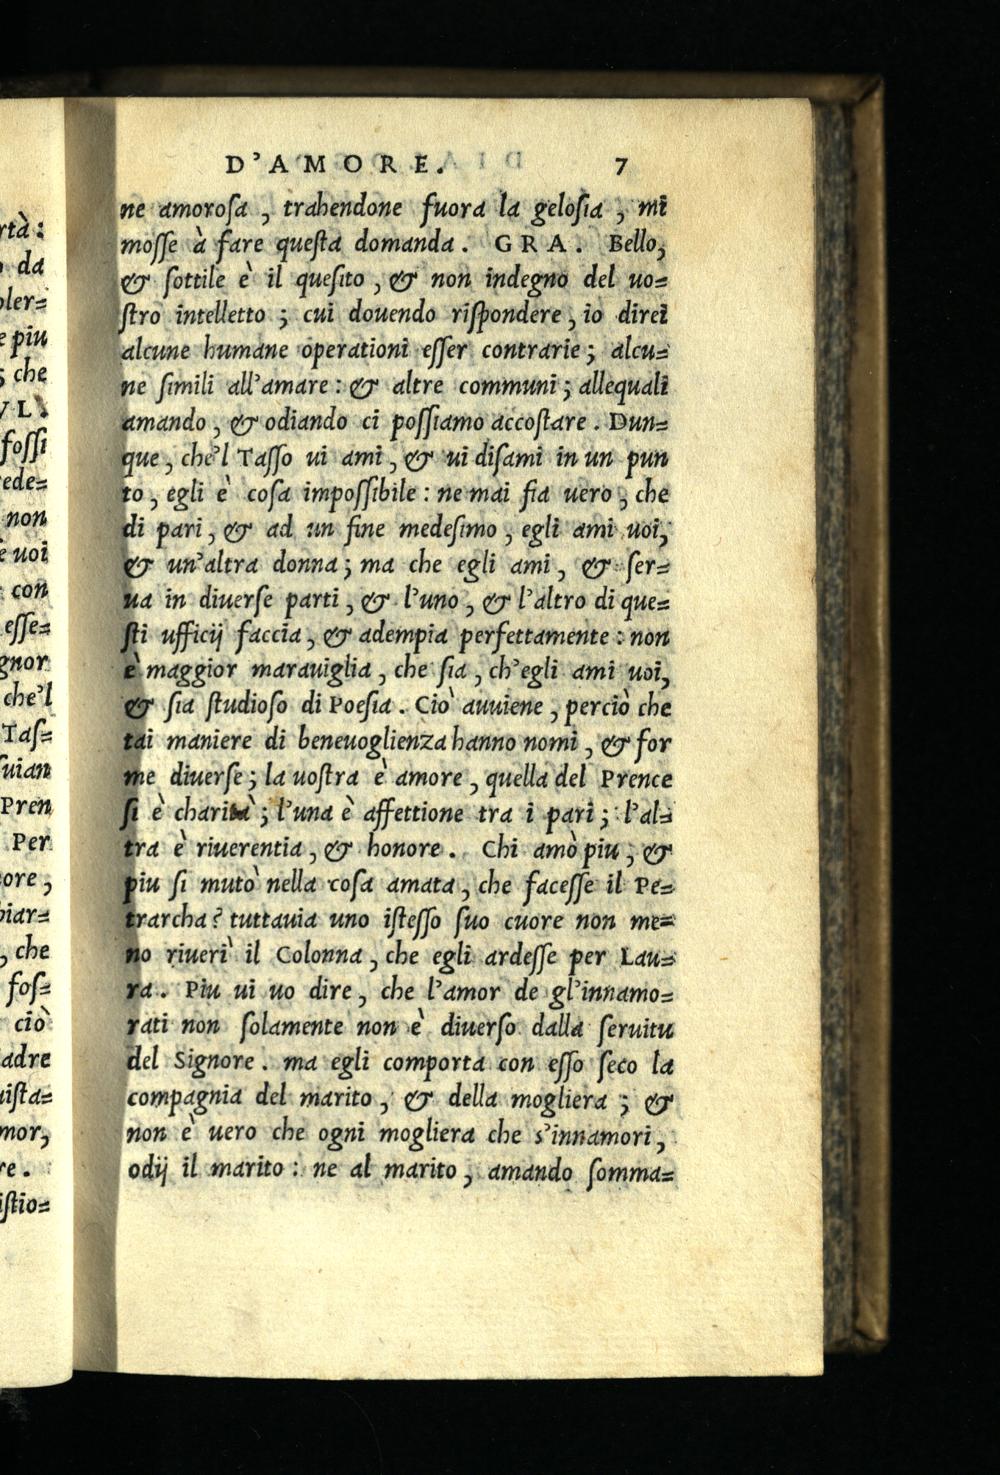 D'AMORE. 7
ne amorosa, trahendone fuora la gelosia, mi
mosse à fare questa domanda. GRA. Bello,
& sottile è il quesito, & non indegno del uo=
stro intelletto; cui douendo rispondere, io direi
alcune humane operationi esser contrarie; alcu=
ne simili all'amare: & altre communi; allequali
amando, & odiando ci possiamo accostare. Dun=
que, che'l Tasso ui ami, & ui disami in un pun
to, egli è cosa impossibile: ne mai fia uero, che
di pari, & ad un fine medesimo, egli ami uoi,
& un'altra donna; ma che egli ami, & ser=
ua in diuerse parti, & l'uno, & l'altro di que=
sti ufficij faccia, & adempia perfettamente: non
è maggior marauiglia, che sia, ch'egli ami uoi,
& sia studioso di Poesia. Ciò auuiene, perciò che
tai maniere di beneuoglienza hanno nomi, & for
me diuerse; la uostra è amore, quella del Prence
si è charità; l'una è affettione tra i pari; l'al=
tra è riuerentia, & honore. Chi amò piu, &
piu si mutò nella cosa amata, che facesse il Pe=
trarcha? tuttauia uno istesso suo cuore non me=
no riuerì il Colonna, che egli ardesse per Lau=
ra. Piu ui uo dire, che l'amor de gl'innamo=
rati non solamente non è diuerso dalla seruitu
del Signore. ma egli comporta con esso seco la
compagnia del marito, & della mogliera; &
non è uero che ogni mogliera che s'innamori,
odij il marito: ne al marito, amando somma=
rtà:
da
oler=
e piu
che
VL.
fossi
ede=
non
è uoi
con
esse=
gnor
che'l
Tas=
Pren
Per
ore,
biar=
, che
fos=
ciò
adre
uista=
mor,
re.
istio=